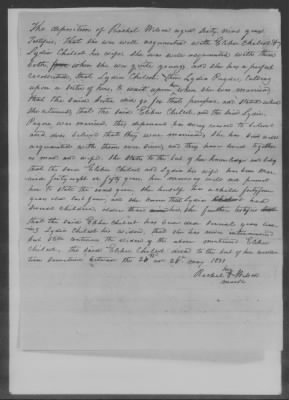 The deposition of Rachel Wilson aged Sixty nine years
Testifies, that she was well acquainted with Elihu Chilsot &
Lydia Chilsot his wife. She was well acquainted with them
both when she was quite young and she has a perfect
recollection, that Lydia Chilsot then Lydia Payne, Called
upon a Sister of hers, to wait upon her when she was married
that the said Sister did go for that purpose, and stated when
she returned, that the said Elihu Chilsot, and the said Lydia
Payne was married, this deponent has every reason to believe
and does believe that they were married, she has been well
acquainted with them ever since, and they have lived together
as man and wife. She states to the best of her knowledge and belief
that the said Elihu Chilsot and Lydia his wife has been mar-
ried forty eight or fifty years her memory will not permit
her to state the exact year, she herself has a child forty four
years old last June, and she knows that Lydia had
several children older than and she further testifies
that the said Elihu Chilsot has been dead several years leav-
ing Lydia Chilsot his widow, that she has never intermarried
but still continues the widow of the above mentioned Elihu
Chilsot, the said Elihu Chilsot died to the best of her recollec-
tion sometime between the 20th or 28th May 1831
Rachel Wilson
mark